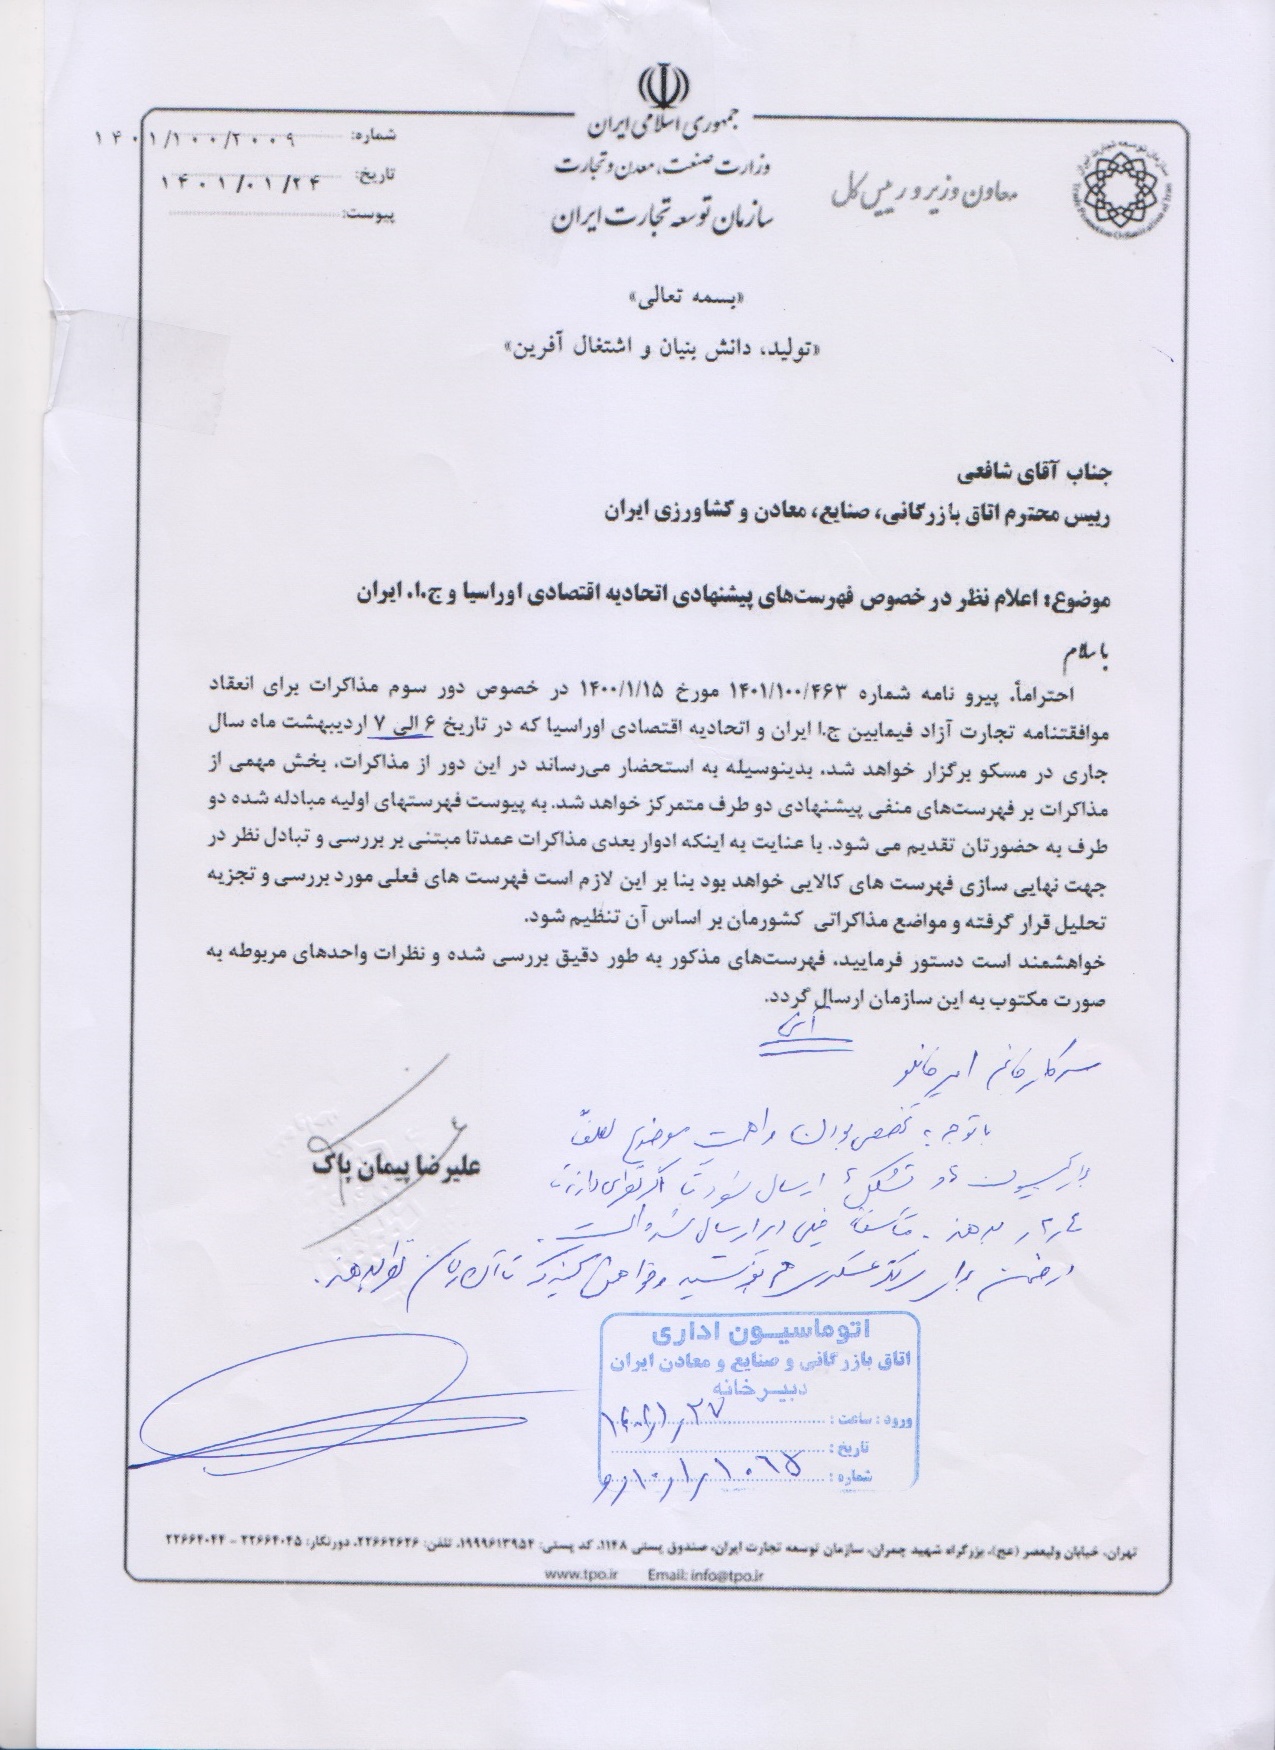 جمهوری اسلامی ایران
وزارت صنعت، معدن و تجارت
سازمان توسعه تجارت ایران
معاون وزیر و رییس کل
سازمان توسعه تجارت ایران
Trade Promotion Organization of Iran
شماره: ۱۴۰۱/۱۰۰/۲۰۰۹
تاریخ: ۱۴۰۱/۰۱/۲۴
پیوست:
«بسمه تعالی»
«تولید، دانش بنیان و اشتغال آفرین»
جناب آقای شافعی
رییس محترم اتاق بازرگانی، صنایع، معادن و کشاورزی ایران
موضوع: اعلام نظر در خصوص فهرست‌های پیشنهادی اتحادیه اقتصادی اوراسیا و ج.ا. ایران
با سلام
احتراماً، پیرو نامه شماره ۱۴۰۱/۱۰۰/۴۶۳ مورخ ۱۴۰۰/۱/۱۵ در خصوص دور سوم مذاکرات برای انعقاد
موافقتنامه تجارت آزاد فیمابین ج.ا ایران و اتحادیه اقتصادی اوراسیا که در تاریخ ۶ الی ۷ اردیبهشت ماه سال
جاری در مسکو برگزار خواهد شد، بدینوسیله به استحضار می‌رساند در این دور از مذاکرات، بخش مهمی از
مذاکرات بر فهرست‌های منفی پیشنهادی دو طرف متمرکز خواهد شد. به پیوست فهرستهای اولیه مبادله شده دو
طرف به حضورتان تقدیم می شود. با عنایت به اینکه ادوار بعدی مذاکرات عمدتا مبتنی بر بررسی و تبادل نظر در
جهت نهایی سازی فهرست های کالایی خواهد بود بنا بر این لازم است فهرست های فعلی مورد بررسی و تجزیه
تحلیل قرار گرفته و مواضع مذاکراتی کشورمان بر اساس آن تنظیم شود.
خواهشمند است دستور فرمایید، فهرست‌های مذکور به طور دقیق بررسی شده و نظرات واحدهای مربوطه به
صورت مکتوب به این سازمان ارسال گردد.
سرکار خانم امیرخانلو
با توجه به تخصصی بودن و اهمیت موضوع لطفاً
ارسال شود تا اگر
بدهند. متأسفانه خیلی دیر ارسال شده است.
در ضمن برای
علیرضا پیمان پاک
اتوماسیون اداری
اتاق بازرگانی و صنایع و معادن ایران
دبیرخانه
ورود: ساعت: ۱۴۰۱/۱/۲۷
تاریخ:
شماره:
تهران، خیابان ولیعصر (عج)، بزرگراه شهید چمران، سازمان توسعه تجارت ایران، صندوق پستی ۱۱۴۸، کد پستی: ۱۹۹۹۶۱۳۹۵۴، تلفن: ۲۲۶۶۲۶۲۶، دورنگار: ۲۲۶۶۴۰۴۵ - ۲۲۶۶۴۰۴۴
www.tpo.ir Email: info@tpo.ir